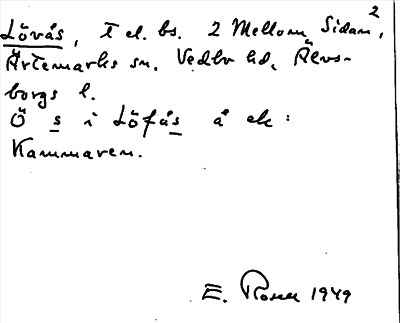 Lövås, t el. bs. 2 Mellom Sidan²,
Ärtemarks sn. Vedbo hd, Älvs-
borgs l.
Ö s i Löfås å ek:
Kammaren.
E. Rosell 1949